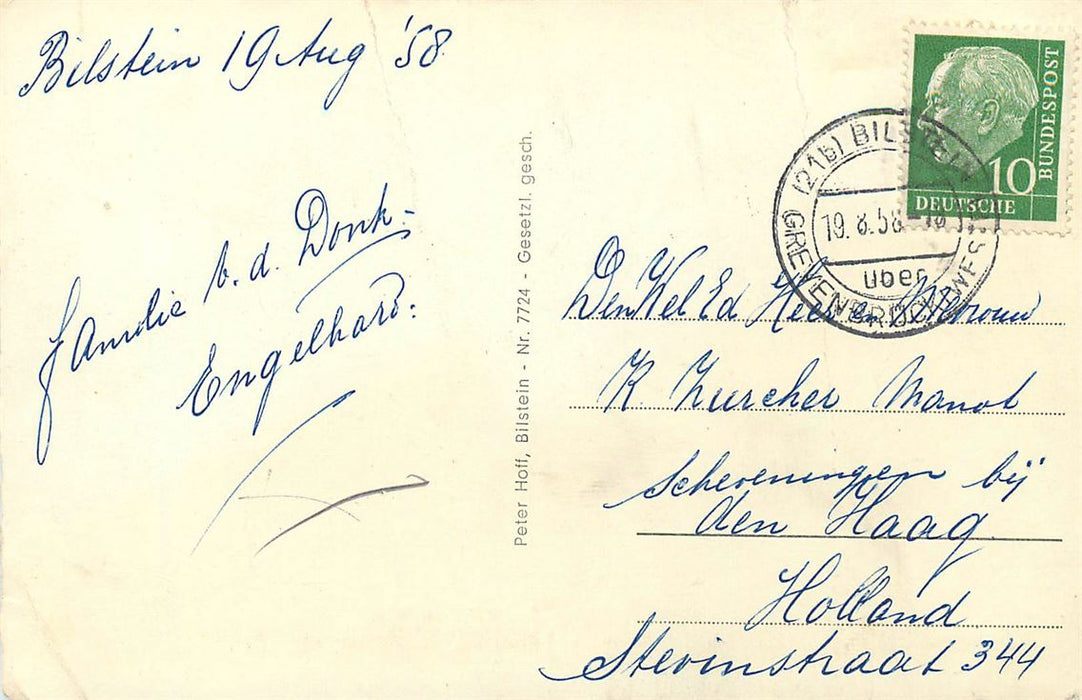 Bilstein 19 Aug '58
Familie v. d. Donk-
Engelhard:
Peter Hoff, Bilstein - Nr. 7724 - Gesetzl. gesch.
BUNDESPOST
10
DEUTSCHE
(21b) BILSTEIN
19.8.58
über
GREVENBRÜCK WESTF
Den Wel Ed Heer en Mevrouw
K Zurcher Manot
Scheveningen bij
den Haag
Holland
Stevinstraat 344